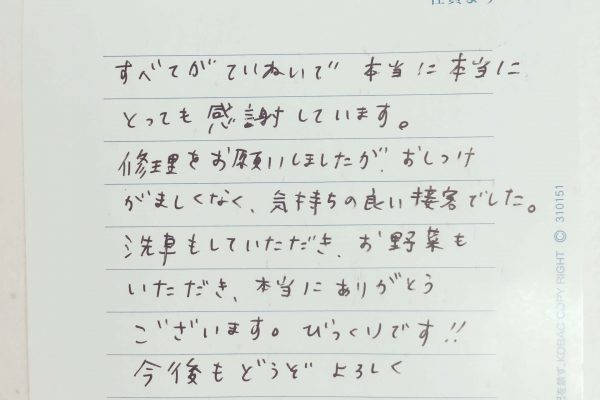 すべてがていねいで 本当に本当に
とっても感謝しています。
修理をお願いしましたが、おしつけ
がましくなく、気持ちの良い接客でした。
洗車もしていただき、お野菜も
いただき、本当にありがとう
ございます。びっくりです!!
今後もどうぞよろしく
KOBAC COPY RIGHT © 310151